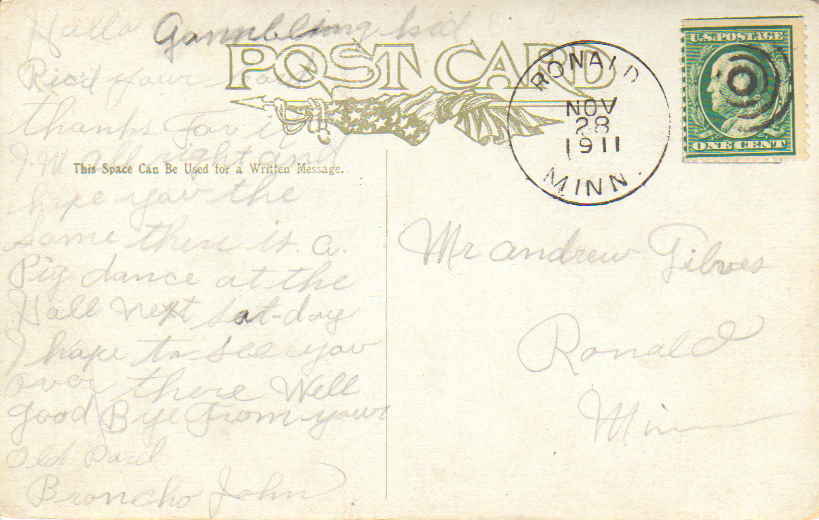 Hallo Gammbling kid
POST CARD
Ricd your card
thanks For it
I.m all right and
This Space Can Be Used for a Written Message.
hope yow the
same there is a.
Pig dance at the
Hall next Sat-day
I hape to see yow
over there Well
good Bye From your
Old Pard
Broncho John
RONALD
NOV
28
1911
MINN.
U.S. POSTAGE
ONE CENT
Mr andrew
Ronald
Minn